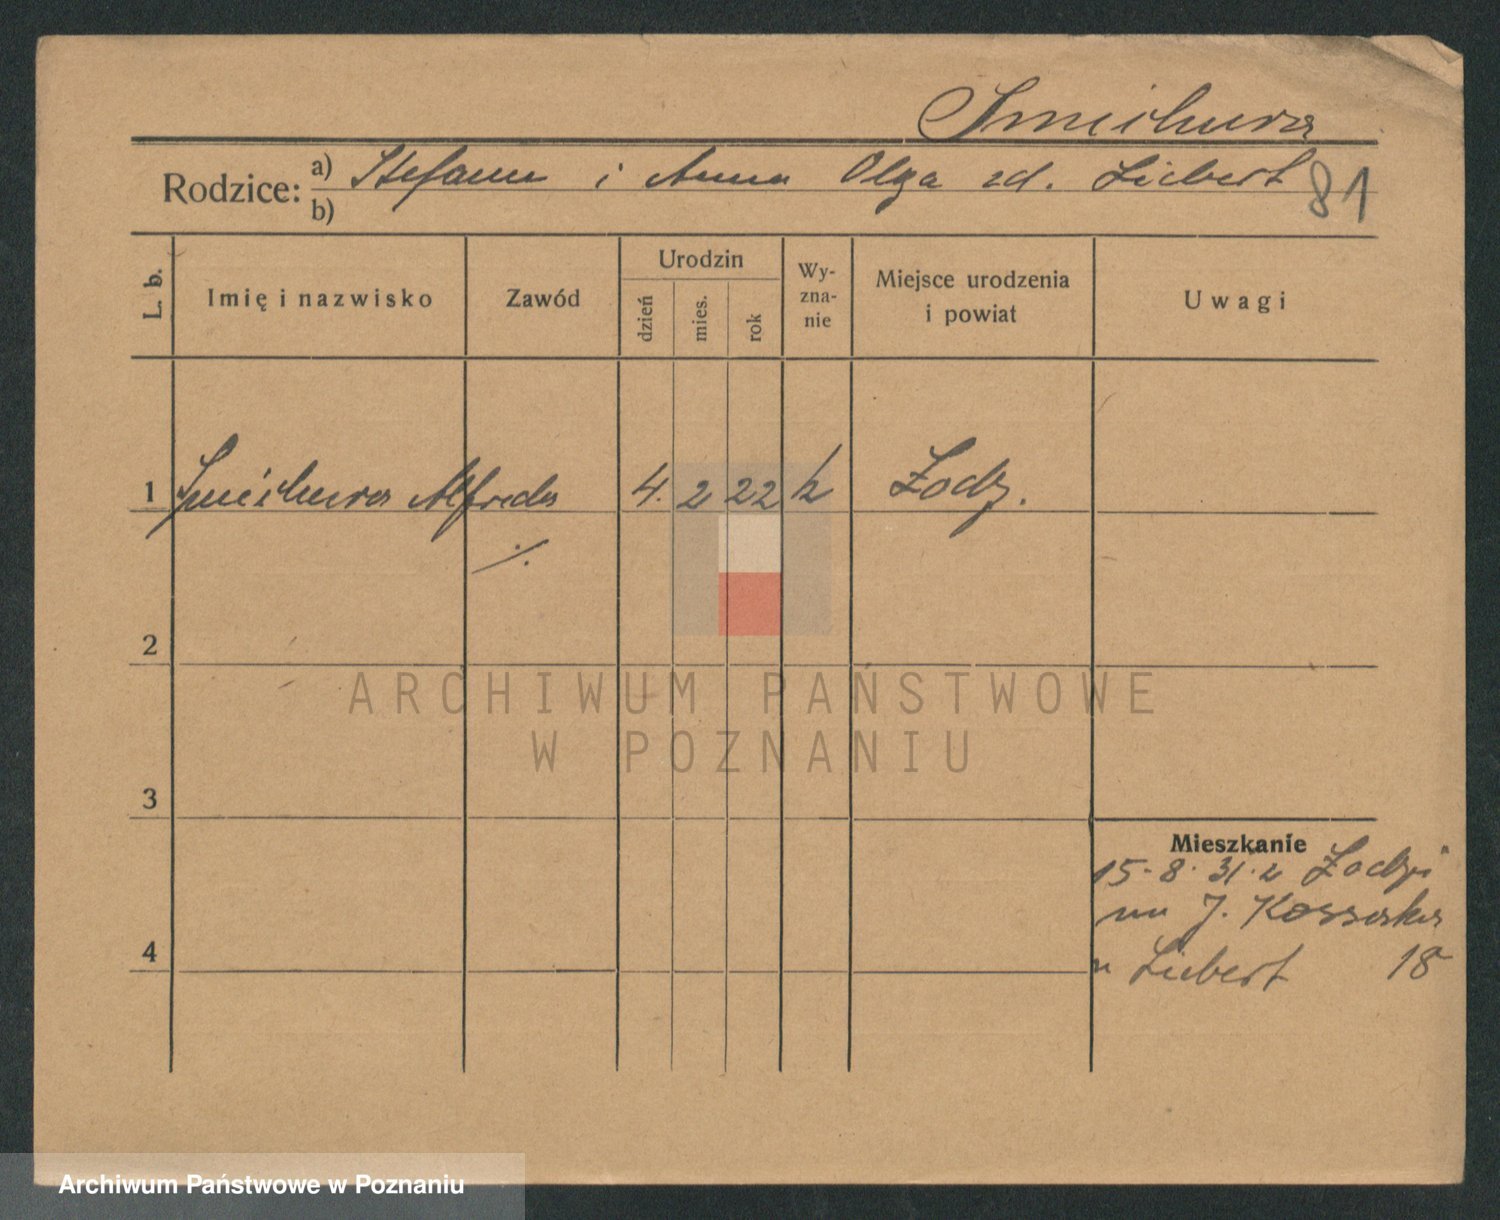 Smichura
Rodzice: a) Stefan i Anna Olga zd. Liebert
b)
81
L. b. Imię i nazwisko Zawód Urodzin dzień mies. rok Wy-zna-nie Miejsce urodzenia i powiat Uwagi
1 Smichura Alfreda 4. 2 22 k Łodz.
./.
2
ARCHIWUM PAŃSTWOWE
W POZNANIU
3
Mieszkanie
15-8. 31. z Łodzi
J. Kossaka
4
u Liebert 18
Archiwum Państwowe w Poznaniu